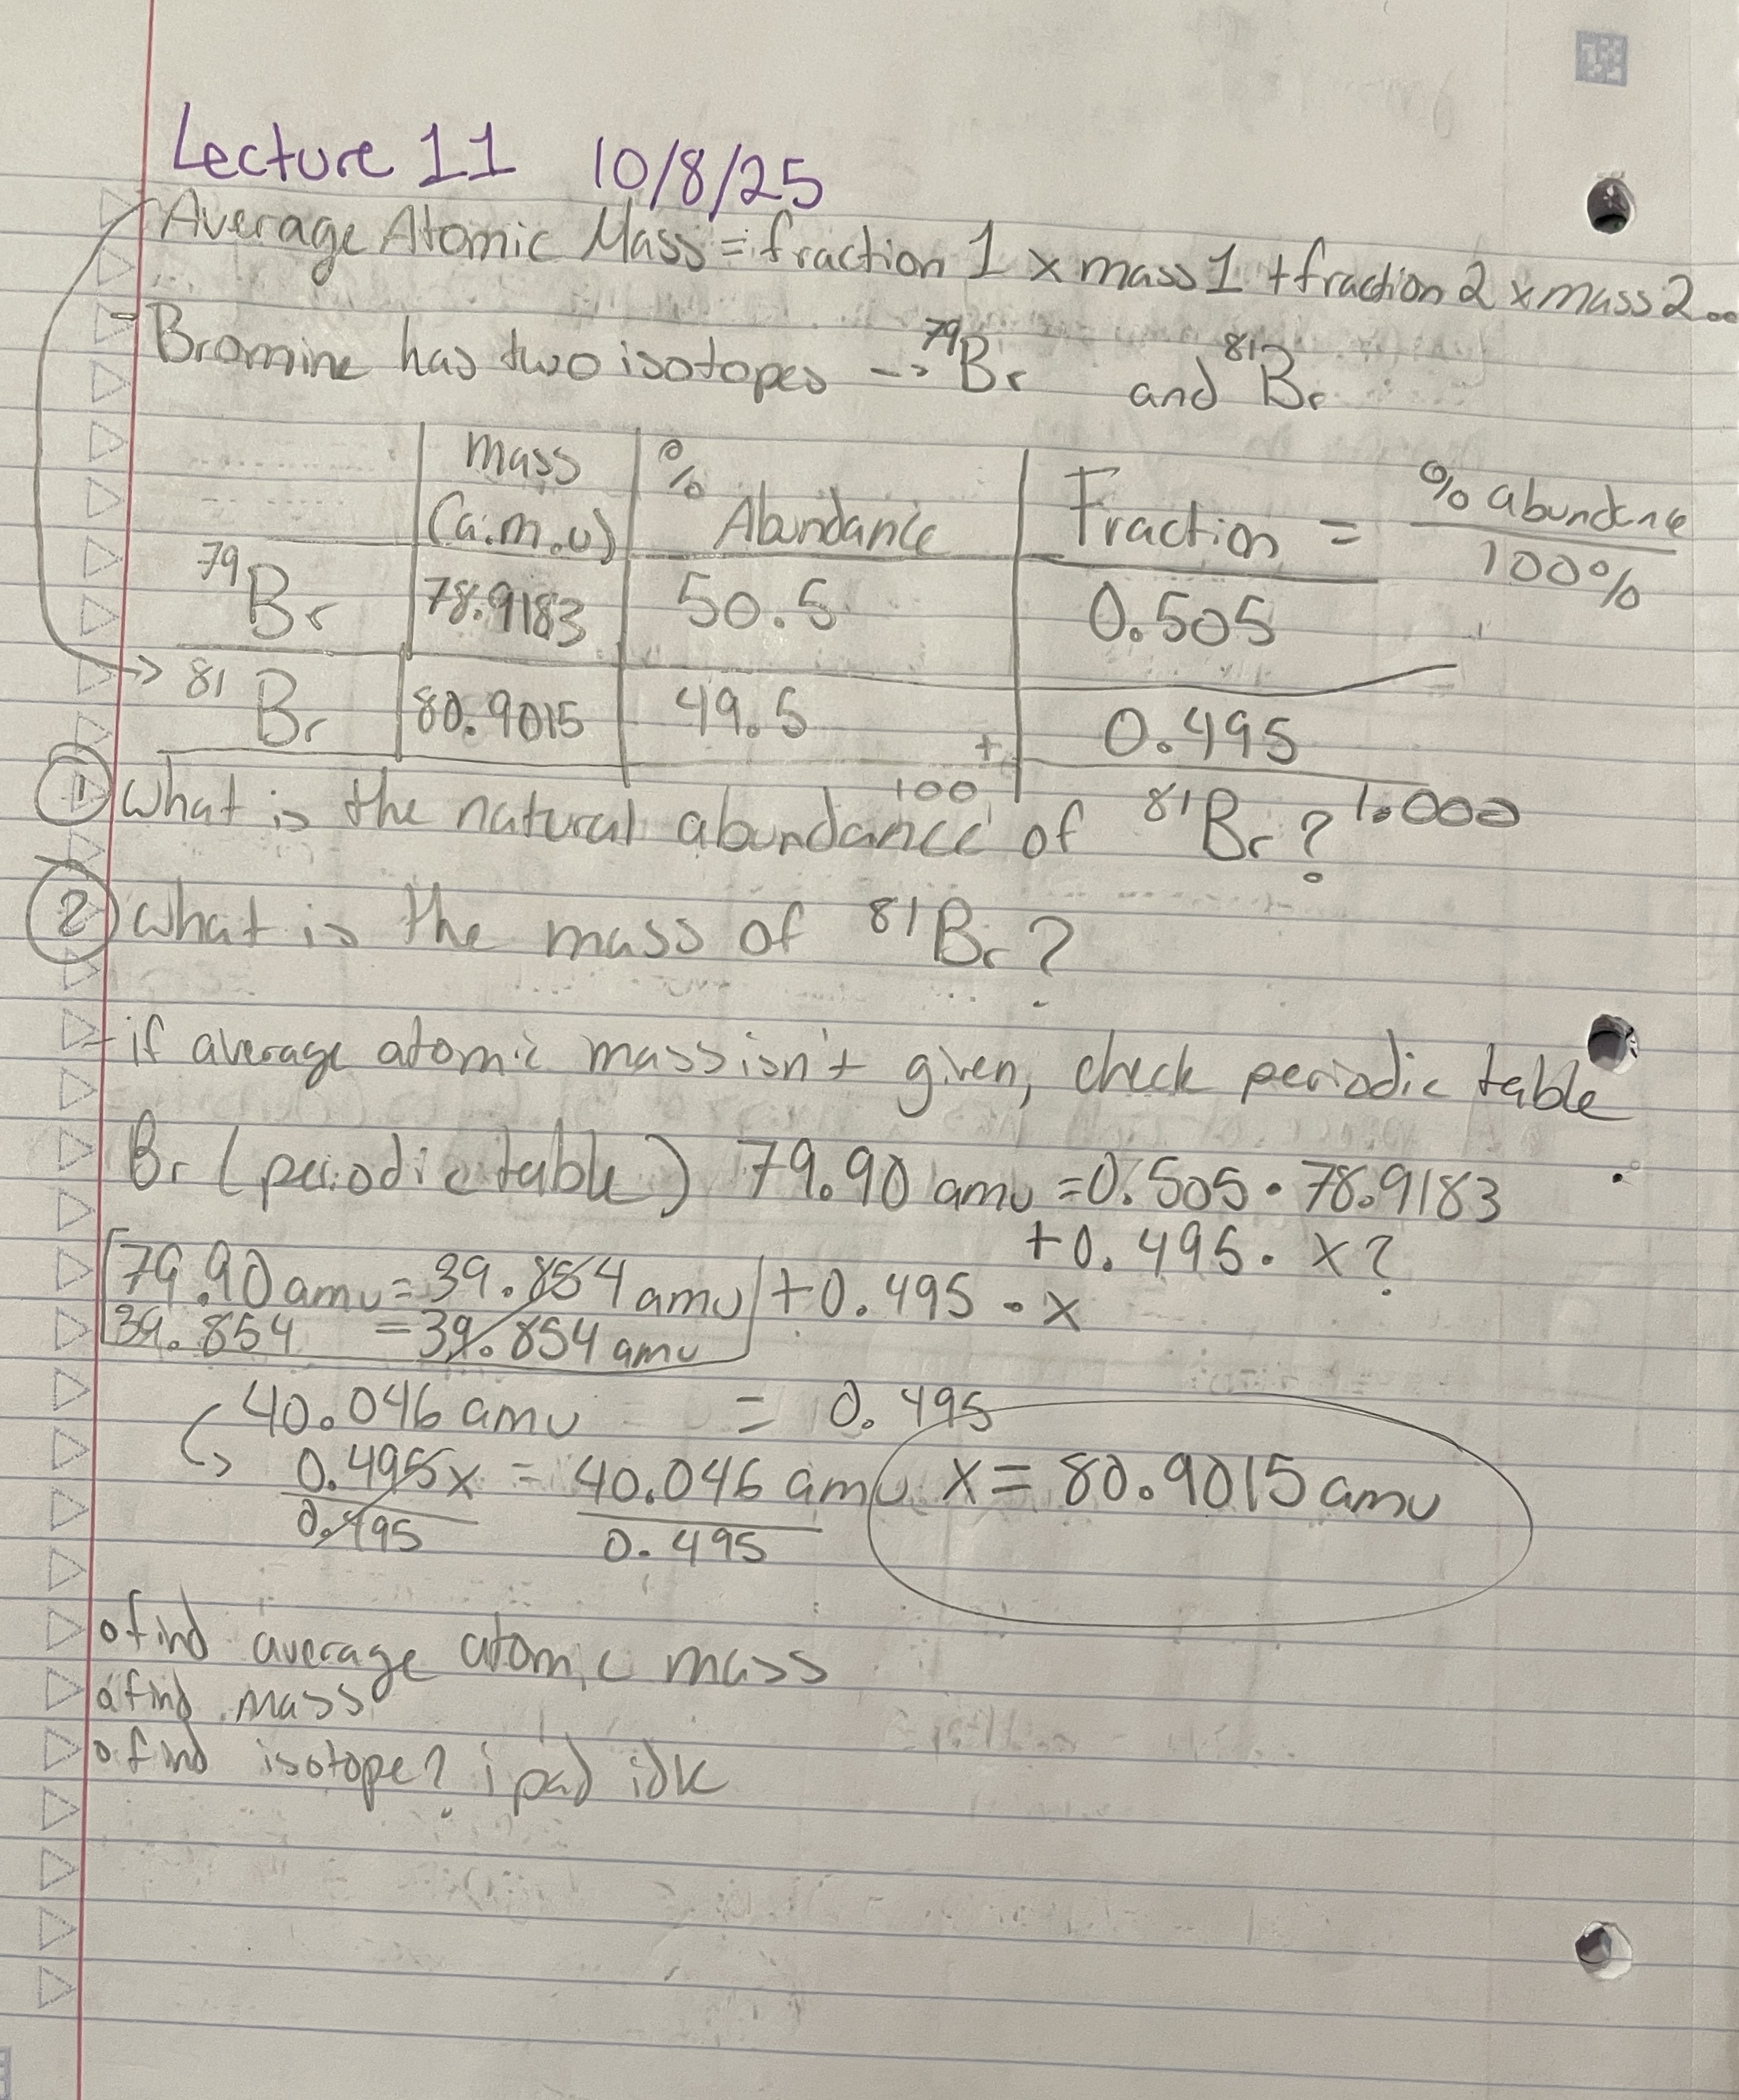 Lecture 11 10/8/25
Average Atomic Mass = fraction 1 x mass 1 + fraction 2 x mass 2...
- Bromine has two isotopes --> 79Br and 81Br
mass (a.m.u) % Abundance Fraction = % abundance / 100%
79Br 78.9183 50.5 0.505
81Br 80.9015 49.5 0.495
+ 100 1.000
① What is the natural abundance of 81Br?
② What is the mass of 81Br?
- if average atomic mass isn't given, check periodic table
Br (periodic table) 79.90 amu = 0.505 · 78.9183
+ 0.495 · x?
79.90 amu = 39.854 amu + 0.495 · x
39.854 = 39.854 amu
40.046 amu = 0.495
0.495x / 0.495 = 40.046 amu / 0.495 x = 80.9015 amu
o find average atomic mass
o find mass
o find isotope? ipad idk